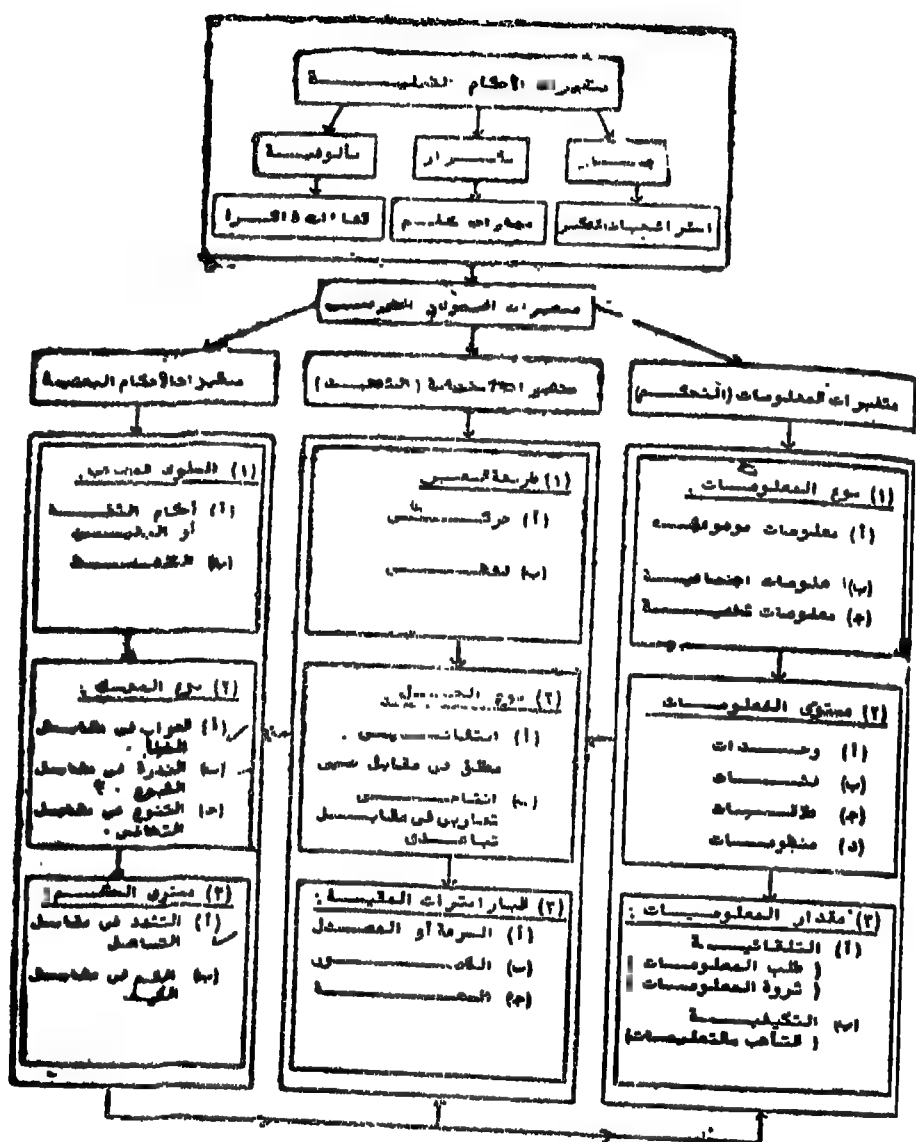 متغيرات الأحكام القبلية
جدة
تكرار
مألوفية
استراتيجيات التفكير
مهارات تعلم
كفاءات ذاكرة
متغيرات السلوك المعرفي
متغيرات المعلومات (التحكم)
متغيرات الاستجابة (التنفيذ)
متغيرات الأحكام البعدية
(١) نوع المعلومات :
(أ) معلومات موضوعية
(ب) معلومات اجتماعية
(ج) معلومات شخصية
(٢) مستوى المعلومات
(أ) وحدات
(ب) فئات
(ج) علاقات
(د) منظومات
(٣) مقدار المعلومات :
(أ) التلقائية
( طلب المعلومات )
( ثروة المعلومات )
(ب) التكيفية
( التأهب بالتعليمات )
(١) طريقة التعبير
(أ)
(ب) لفظي
(٢) نوع
(أ) انتقائي
مطلق في مقابل نسبي
(ب) انتاجي
تقاربي في مقابل
تباعدي
(٣) البارامترات المقيسة :
(أ) السرعة أو المعدل
(ب)
(ج) السعة
(١) المحتوى
(أ) أحكام الثقة
أو اليقين
(ب) التفضيل
(٢) نوع المحك :
(أ) الصواب في مقابل
الخطأ .
(ب) الندرة في مقابل
الشيوع . ؟
(ج) التنوع في مقابل
التجانس .
(٣) مستوى الحكم
(أ) التشدد في مقابل
التساهل
(ب) الكم في مقابل
الكيف